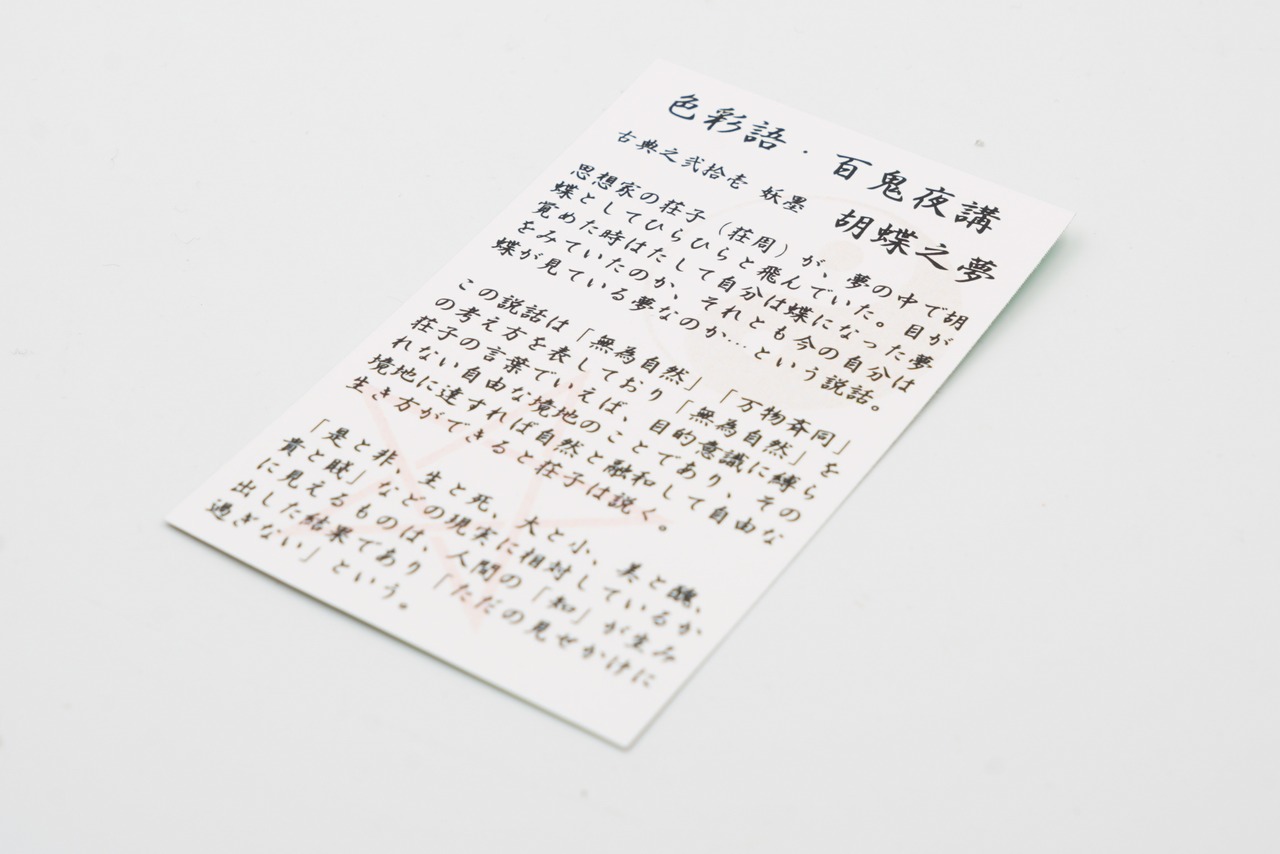 色彩語・百鬼夜講
古典之弐拾壱 妖墨 胡蝶之夢
思想家の荘子（荘周）が、夢の中で胡
蝶としてひらひらと飛んでいた。目が
覚めた時はたして自分は蝶になった夢
をみていたのか、それとも今の自分は
蝶が見ている夢なのか…という説話。
この説話は「無為自然」「万物斉同」
の考え方を表しており「無為自然」を
荘子の言葉でいえば、目的意識に縛ら
れない自由な境地のことであり、その
境地に達すれば自然と融和して自由な
生き方ができると荘子は説く。
「是と非、生と死、大と小、美と醜、
貴と賎」などの現実に相対しているか
に見えるものは、人間の「知」が生み
出した結果であり「ただの見せかけに
過ぎない」という。